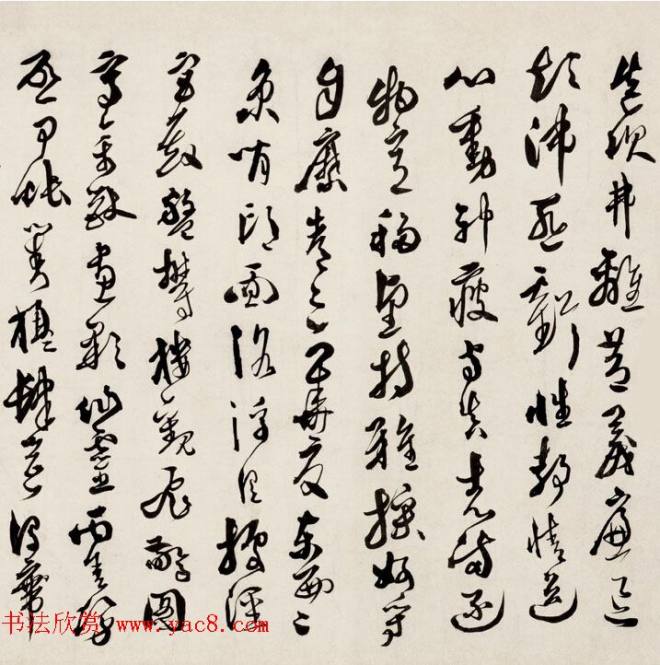 造次弗離節義廉退
顛沛匪虧性静情逸
心動神疲守真志滿逐
物意移堅持雅操好爵
自縻都邑華夏東西二
京背邙面洛浮渭據涇
宮殿盤欝樓觀飛驚圖
寫禽獸畫彩仙靈丙舍傍
啓甲帳對楹肆筵設席
书法欣赏 www.yac8.com